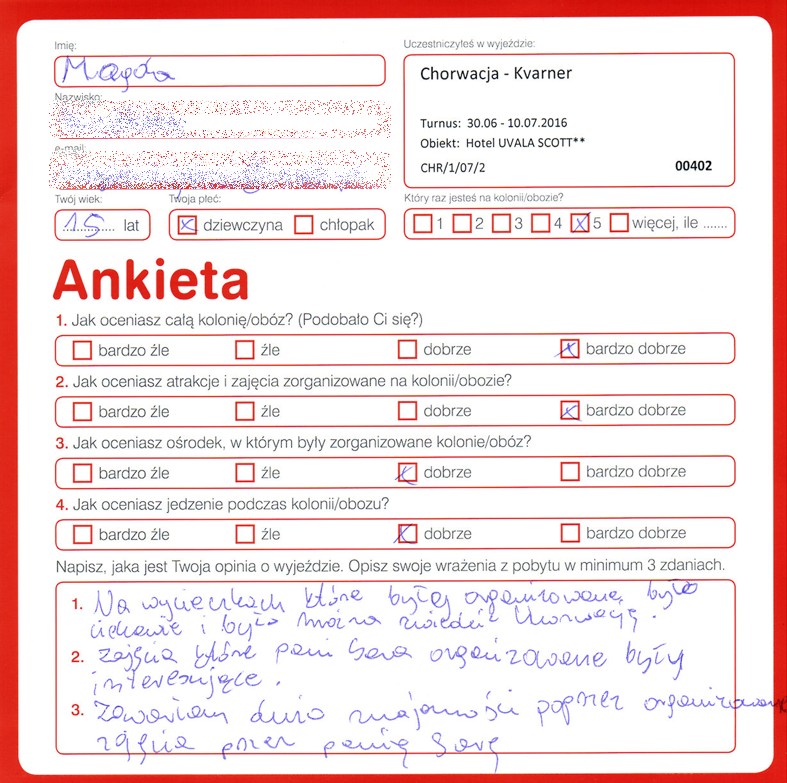 Imię:
Magda
Nazwisko:
e-mail:
Twój wiek:
15 lat
Twoja płeć:
dziewczyna chłopak
Uczestniczyłeś w wyjeździe:
Chorwacja - Kvarner
Turnus: 30.06 - 10.07.2016
Obiekt: Hotel UVALA SCOTT**
CHR/1/07/2 00402
Który raz jesteś na kolonii/obozie?
1 2 3 4 5 więcej, ile .......
Ankieta
1. Jak oceniasz całą kolonię/obóz? (Podobało Ci się?)
bardzo źle źle dobrze bardzo dobrze
2. Jak oceniasz atrakcje i zajęcia zorganizowane na kolonii/obozie?
bardzo źle źle dobrze bardzo dobrze
3. Jak oceniasz ośrodek, w którym były zorganizowane kolonie/obóz?
bardzo źle źle dobrze bardzo dobrze
4. Jak oceniasz jedzenie podczas kolonii/obozu?
bardzo źle źle dobrze bardzo dobrze
Napisz, jaka jest Twoja opinia o wyjeździe. Opisz swoje wrażenia z pobytu w minimum 3 zdaniach.
1. Na wycieczkach które były organizowane było
ciekawie i było można zwiedzić Chorwację.
2. zajęcia które pani Sara organizowane były
interesujące.
3. Zawarłam dużo znajomości poprzez organizowane
zajęcia przez panią Sarę